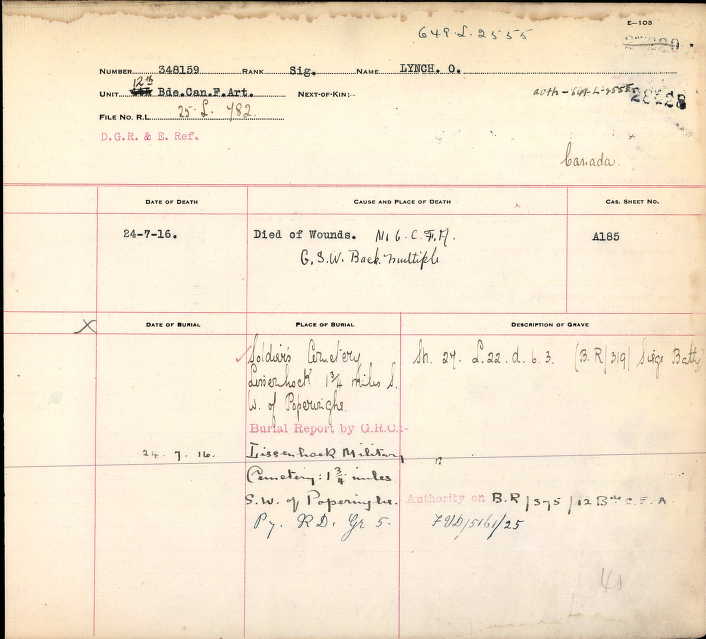 649.L.2555
E—103
NUMBER 348159 RANK Sig. NAME LYNCH. O.
12th
UNIT Bde.Can.F.Art. NEXT-OF-KIN:-
auth-649-L-2555
FILE NO. R.L. 25.L.782
D.G.R. & E. Ref.
Canada.
DATE OF DEATH CAUSE AND PLACE OF DEATH CAS. SHEET NO.
24-7-16. Died of Wounds. No 6. C.F.A. A185
G.S.W. Back multiple
X DATE OF BURIAL PLACE OF BURIAL DESCRIPTION OF GRAVE
Soldiers Cemetery Sh. 27. L.22.d.6.3. (B.R/319/ Siege Batty)
Lissenhoek 1¾ miles S.
W. of Poperinghe
Burial Report by G.R.C.:-
24.7.16. Lissenhoek Military
Cemetery: 1¾ miles
S.W. of Poperinghe. Authority on B.R/375/12 Bde C.F.A.
Py. R D. Gr 5.